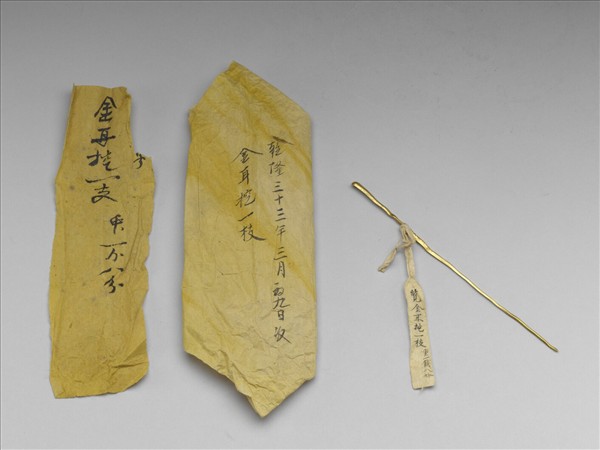 金耳挖一支
乾隆三十三年三月初九日收
金耳挖一枝
金耳挖一枝 重一錢八分